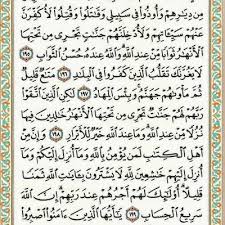 مِن دِيَٰرِهِمْ وَأُوذُوا۟ فِى سَبِيلِى وَقَٰتَلُوا۟ وَقُتِلُوا۟ لَأُكَفِّرَنَّ
عَنْهُمْ سَيِّـَٔاتِهِمْ وَلَأُدْخِلَنَّهُمْ جَنَّٰتٍ تَجْرِى مِن تَحْتِهَا
ٱلْأَنْهَٰرُ ثَوَابًا مِّنْ عِندِ ٱللَّهِ وَٱللَّهُ عِندَهُۥ حُسْنُ ٱلثَّوَابِ ١٩٥
لَا يَغُرَّنَّكَ تَقَلُّبُ ٱلَّذِينَ كَفَرُوا۟ فِى ٱلْبِلَٰدِ ١٩٦ مَتَٰعٌ قَلِيلٌ
ثُمَّ مَأْوَىٰهُمْ جَهَنَّمُ وَبِئْسَ ٱلْمِهَادُ ١٩٧ لَٰكِنِ ٱلَّذِينَ ٱتَّقَوْا۟
رَبَّهُمْ لَهُمْ جَنَّٰتٌ تَجْرِى مِن تَحْتِهَا ٱلْأَنْهَٰرُ خَٰلِدِينَ فِيهَا
نُزُلًا مِّنْ عِندِ ٱللَّهِ وَمَا عِندَ ٱللَّهِ خَيْرٌ لِّلْأَبْرَارِ ١٩٨ وَإِنَّ مِنْ
أَهْلِ ٱلْكِتَٰبِ لَمَن يُؤْمِنُ بِٱللَّهِ وَمَآ أُنزِلَ إِلَيْكُمْ وَمَآ
أُنزِلَ إِلَيْهِمْ خَٰشِعِينَ لِلَّهِ لَا يَشْتَرُونَ بِـَٔايَٰتِ ٱللَّهِ ثَمَنًا
قَلِيلًا أُو۟لَٰٓئِكَ لَهُمْ أَجْرُهُمْ عِندَ رَبِّهِمْ إِنَّ ٱللَّهَ
سَرِيعُ ٱلْحِسَابِ ١٩٩ يَٰٓأَيُّهَا ٱلَّذِينَ ءَامَنُوا۟ ٱصْبِرُوا۟